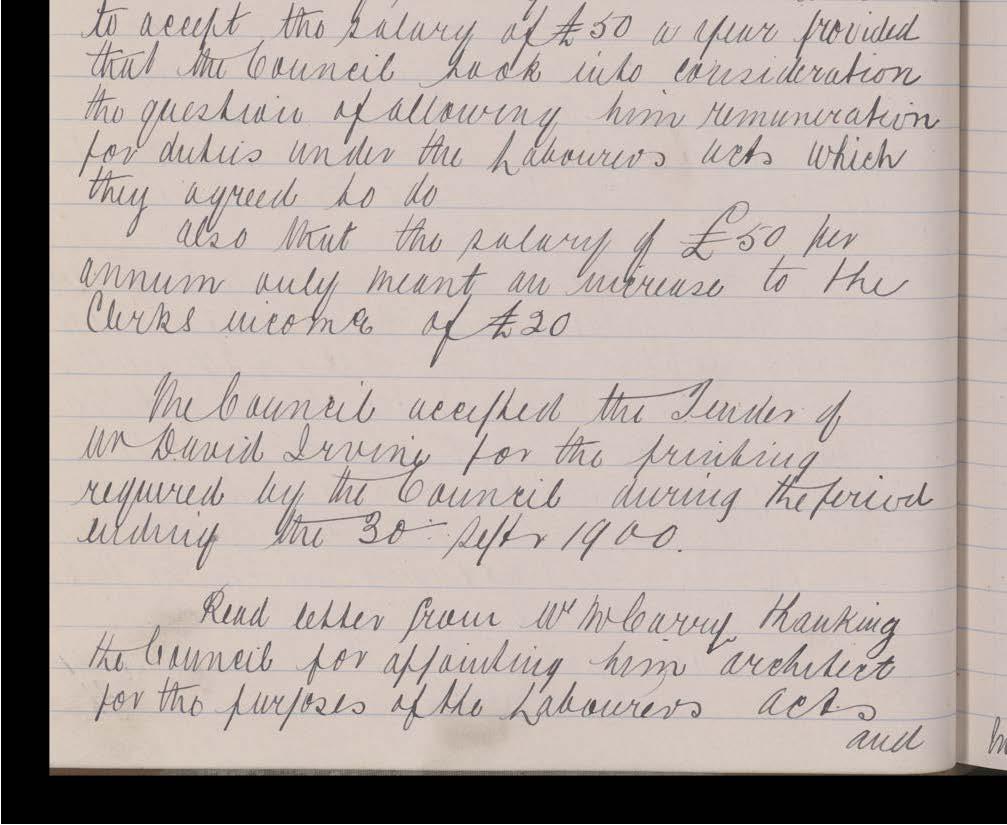 to accept the salary of £50 a year provided
that the Council took into consideration
the question of allowing him remuneration
for duties under the Labourers acts which
they agreed to do
also that the salary of £50 per
annum only meant an increase to the
Clerks income of £20
The Council accepted the Tender of
Mr David Irvine for the printing
required by the Council during the period
ending the 30th Septr 1900.
Read letter from Mr McCarry thanking
the Council for appointing him architect
for the purposes of the Labourers Acts
and